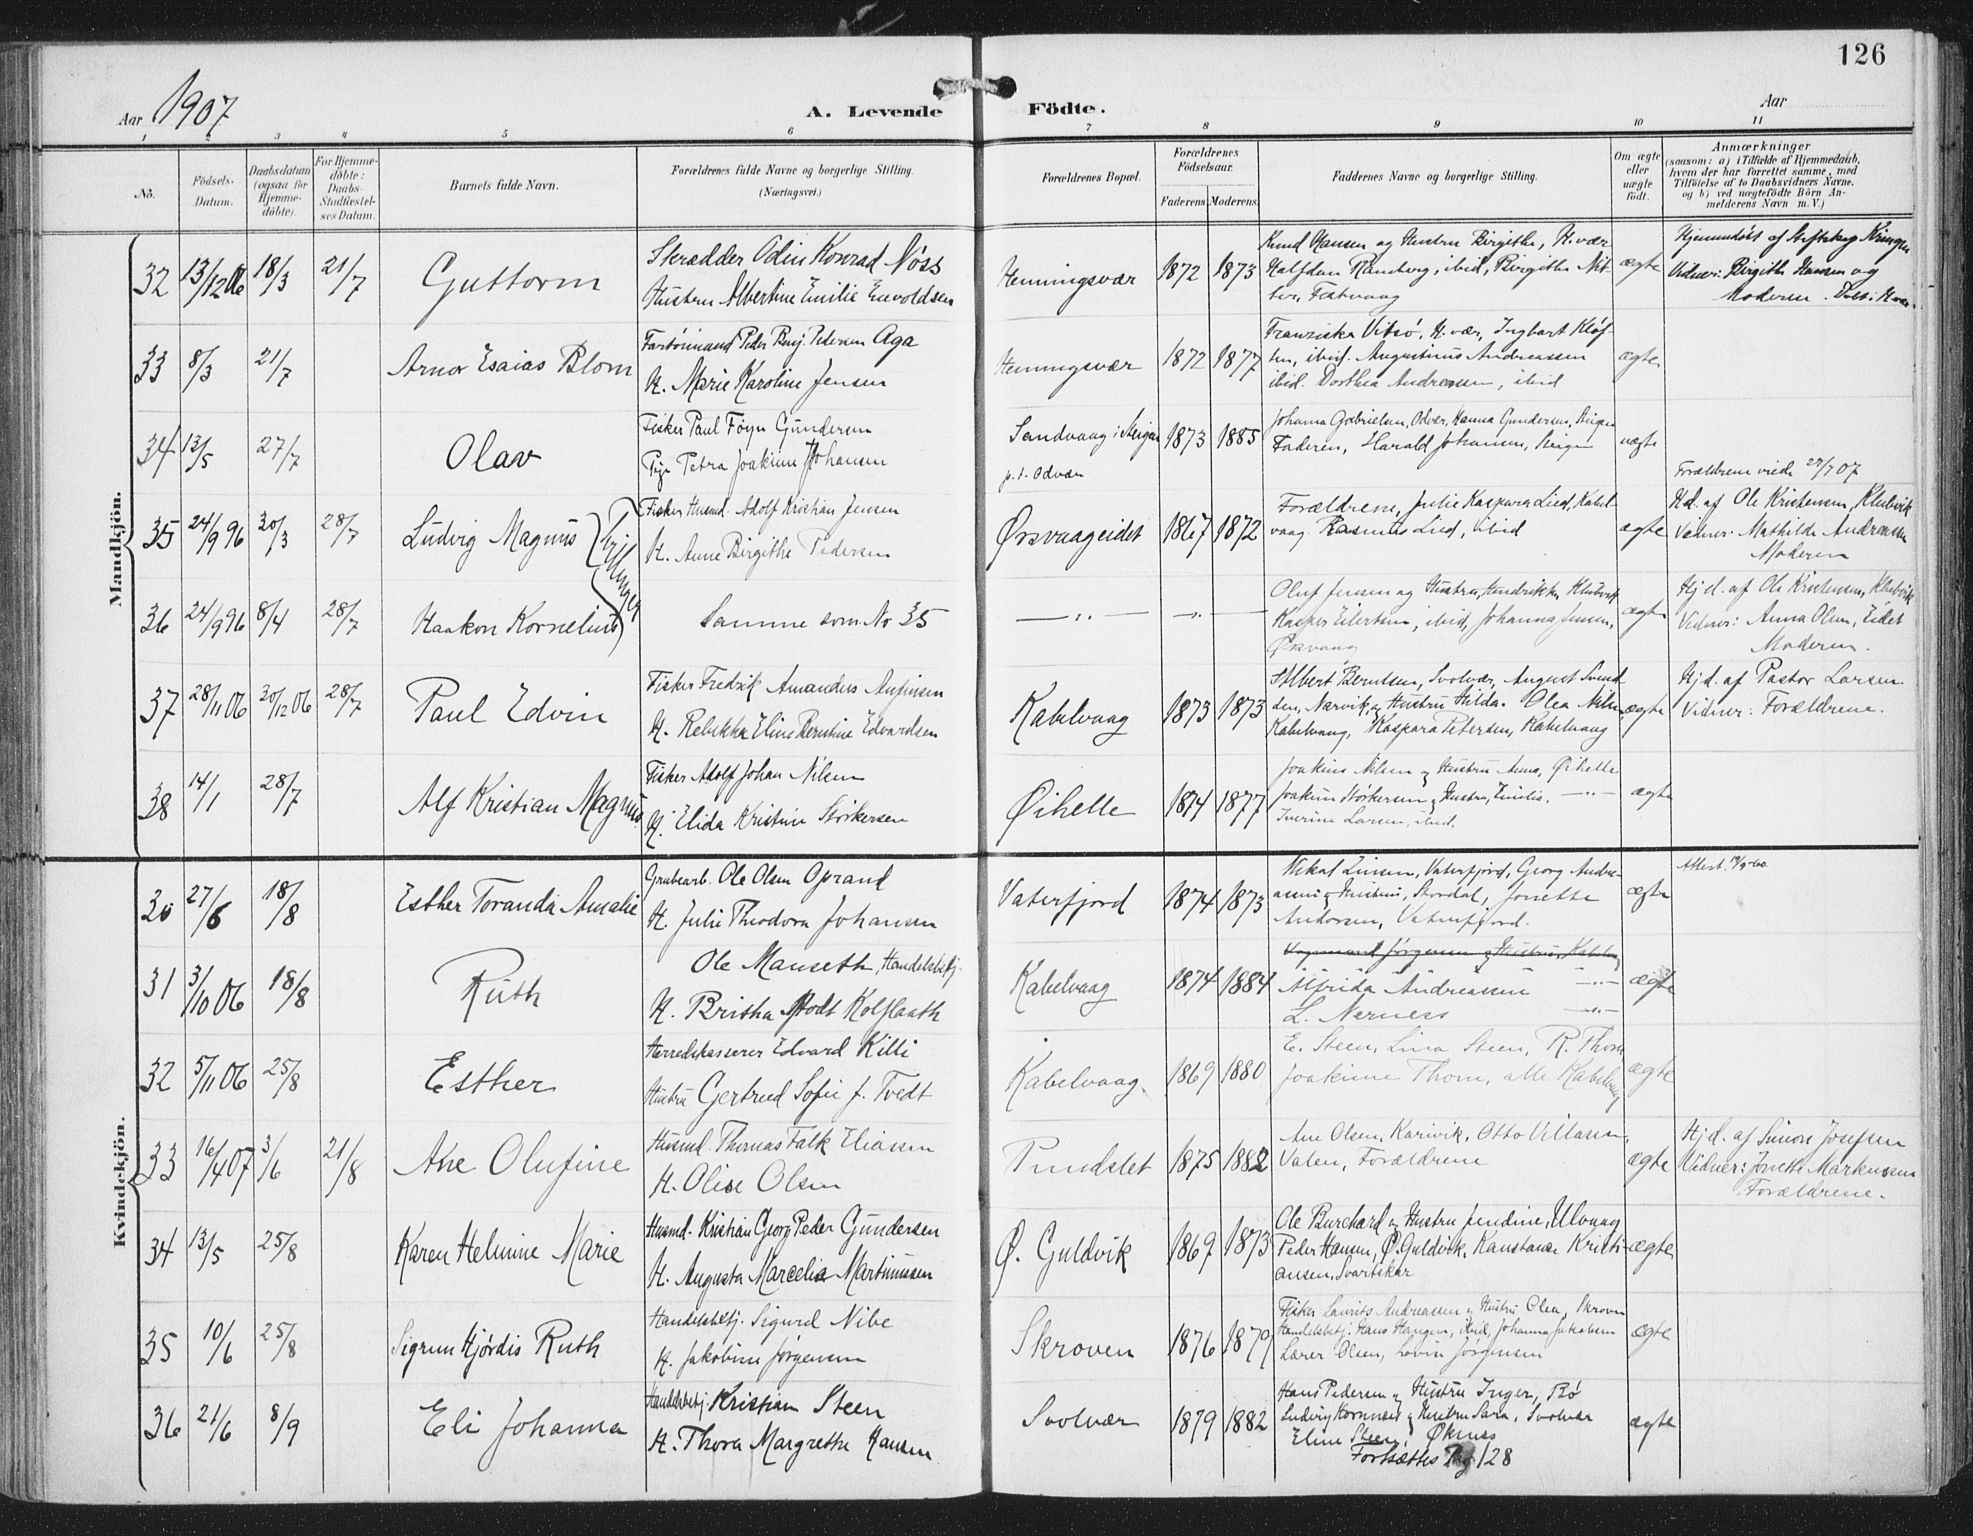 126
Aar 1907
A. Levende Födte.
Aar
1 2 3 4 5 6 7 8 9 10 11
No.
Födsels-Datum.
Daabsdatum (ogsaa for Hjemme-döbte).
For Hjemme-döbte: Daabs-Stadfæstel-ses Datum.
Barnets fulde Navn.
Forældrenes fulde Navne og borgerlige Stilling. (Næringsvei.)
Forældrenes Bopæl.
Forældrenes Födselsaar.
Faderens. Moderens.
Faddernes Navne og borgerlige Stilling.
Om ægte eller uægte födt.
Anmærkninger
(saasom: a) i Tilfælde af Hjemmedaab,
hvem der har forrettet samme, med
Tilföielse af to Daabsvidners Navne,
og b) ved uægtefödte Börn An-
melderens Navn m. V.)
Mandkjön.
32 13/12 06 18/3 21/7 Guttorm
Skrædder Odin Konrad Nöss
Hustru Albertine Emilie Enevoldsen
Henningsvær 1872 1873
Knud Hansen og Hustru Birgithe, H.vær
Halfdan Ramberg, ibid, Birgithe
ægte
Vidner: Birgithe Hansen og
Moderen.
33 8/3 21/7 Arnor Esaias Blom
Peder Benj. Petersen Aga
H. Marie Karoline Jensen
Henningsvær 1872 1877
Franziska Vibsö, H.vær, Ingbart Klöf-
ten, ibid. Augustinus Andreassen
ibid. Dorthea Andreassen, ibid
ægte
34 13/5 27/7 Olav
Fisker Paul Föyn Gundersen
Pige Petra Joakime Johansen
Sandvaag i Steigen
p.t. Odvær
1873 1885
Johanna Gabrielsen, Odvær, Hanna Gundersen,
Faderen, Harald Johansen,
uægte
Forældrene viede 27/7 07
35 24/9 96 30/3 28/7 Ludvig Magnus
Tvillinger
Fisker Husmd. Adolf Kristian Jensen
H. Anne Birgithe Pedersen
Örsvaageidet 1867 1872
Forældrene, Julie Kaspara Lied, Kabel-
vaag Rasmus Lied, ibid
ægte
Hd. af Ole Kristensen, Klubvik
Vidner: Mathilde Andreassen
Moderen
36 24/9 96 8/4 28/7 Haakon Kornelius
Samme som No 35
— " — — " —
Oluf Jensen og Hustru, Hendrikke, Klubvik
Kasper Eilertsen, ibid, Johanna Jensen,
Örsvaag
ægte
Hjd. af Ole Kristensen, Klubvik
Vidner: Anna Olsen, Eidet
Moderen.
37 28/11 06 30/12 06 28/7 Paul Edvin
Fisker Fredrik Amandus Anfinsen
H. Rebekka Eline Berntine Edvardsen
Kabelvaag 1873 1873
Albert Berntsen, Svolvær, August Svend
sen, Narvik og Hustru Hilda. Olea Nilsen
Kabelvaag, Kaspara Petersen, Kabelvaag
ægte
Hjd. af Pastor Larsen.
Vidner: Forældrene.
38 14/1 28/7 Alf Kristian Magnus
Fisker Adolf Johan Nilsen
H. Elida Kristine Störkersen
Öihelle 1874 1877
Joakim Nilsen og Hustru Anna, Öihelle
Joakim Störkersen og Hustru, Emilie, — " —
Iverine Larsen, ibid.
ægte
Kvindekjön.
30 27/6 18/8 Esther Toranda Amalie
Grubearb. Ole Olsen Oprand
H. Julie Theodora Johansen
Vaterfjord 1874 1873
Nikal Linsen, Vaterfjord, Georg Andre-
assen og Hustru, Stordal, Jonette
Andorsen, Vaterfjord.
ægte
Attest
31 3/10 06 18/8 Ruth
Ole Manseth, Handelsbetj.
H. Britha Hodt Kolflaath
Kabelvaag 1874 1884
Vognmand Jörgensen og Hustru, Kabelvaag
Alfrida Andreassen — " —
L. Nerness — " —
ægte
32 5/11 06 25/8 Esther
Herredskasserer Edvard Killi
Hustru Gertrud Sofie f. Tvedt
Kabelvaag. 1869 1880
E. Steen, Lina Steen, R. Thom
Joakime Thom, alle Kabelvaag
ægte
33 16/4 07 3/6 21/8 Ane Olufine
Husmd. Thomas Falk Eliasen
H. Olise Olsen
Pundslet 1875 1882
Ane Olsen, Karivik, Otto Villassen,
Valen, Forældrene
ægte
Hjd. af Simon Josefsen
Vidner: Jonette Markussen
Forældrene.
34 13/5 25/8 Karen Helmine Marie
Husmd. Kristian Georg Peder Gundersen
H. Augusta Marcelia Martinussen
Ö. Guldvik 1869 1873
Ole Burchard og Hustru Jendine, Ulvaag
Peder Hansen, Ö. Guldvik, Konstanse Kristi-
ansen, Svartskar
ægte
35 10/6 25/8 Sigrun Hjördis Ruth
Handelsbetj. Sigurd Nibe
H. Jakobine Jörgensen
Skroven 1876 1879
Fisker Laurits Andreassen og Hustru Olea, Skroven
Handelsbetj. Hans Haugen, ibid, Johanna Jakobsen
Lærer Olsen, Lovise Jörgensen
ægte
36 21/6 8/9 Eli Johanna
Handelsbetj. Kristian Steen
H. Thora Margrethe Hansen
Svolvær 1879 1882
Hans Pedersen og Hustru Inger, Bö
Ludvig Kornnæs og Hustru Sara, Svolvær
Eline Steen, Öknæs
ægte
Fortsættes Pag. 128